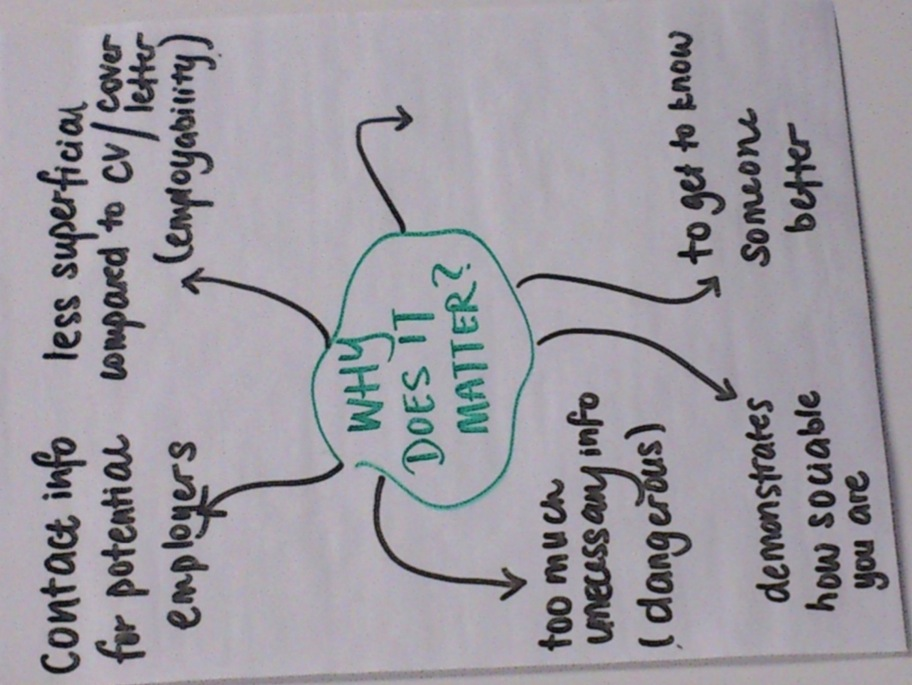 Contact info
for potential
employers
less superficial
compared to CV/cover
letter
(employability)
WHY
DOES IT
MATTER?
too much
unecessary info
(dangerous)
demonstrates
how sociable
you are
to get to know
someone
better